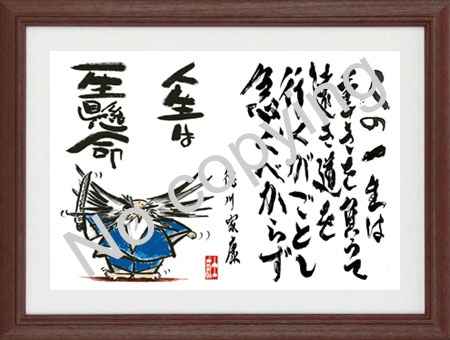 人の一生は
重きを負うて
遠き道を
行くがごとし
急ぐべからず
徳川家康
人生は
一生懸命
No copying